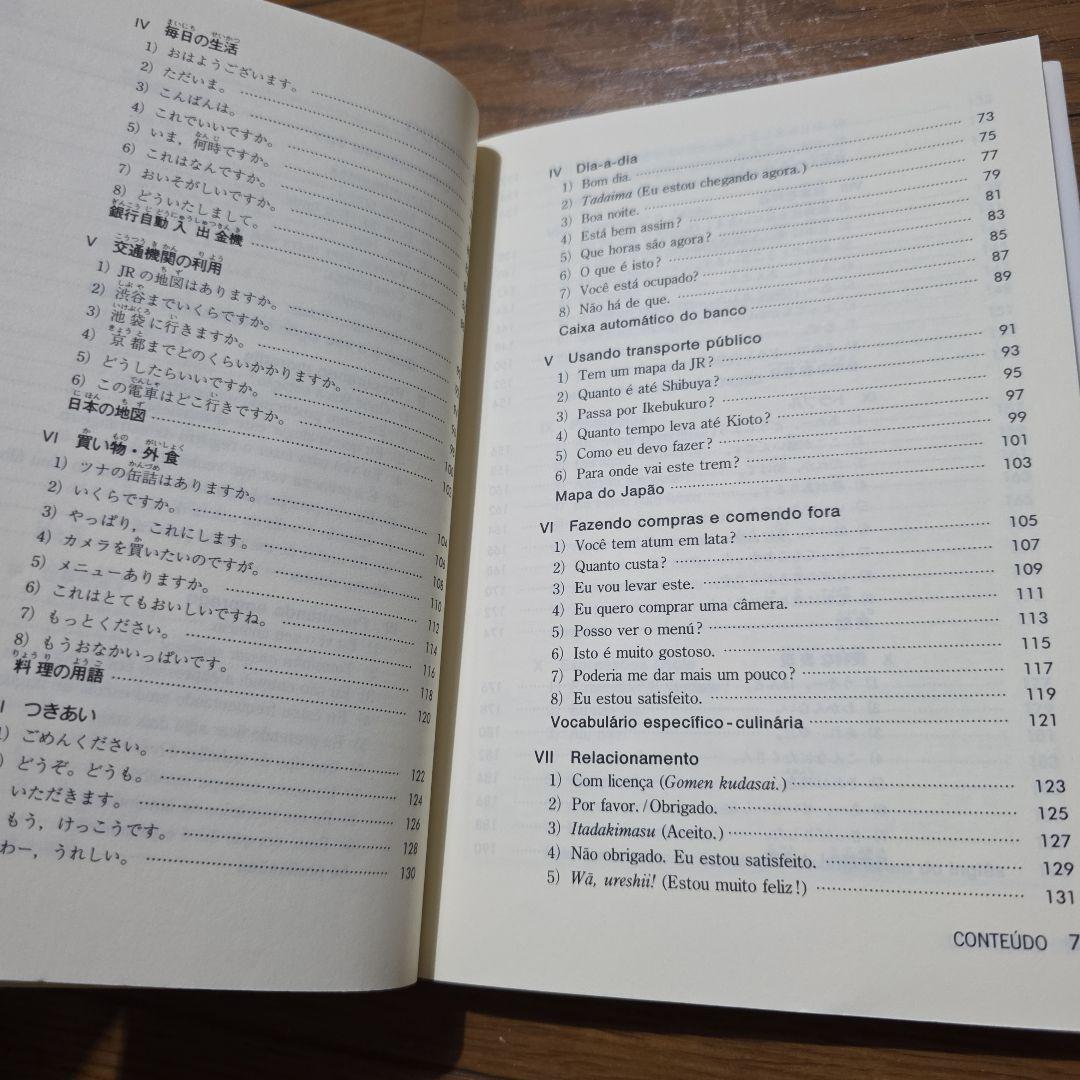 IV 毎日の生活
1) おはようございます。
2) ただいま。
3) こんばんは。
4) これでいいですか。
5) いま，何時ですか。
6) これはなんですか。
7) おいそがしいですか。
8) どういたしまして。
銀行自動入出金機
V 交通機関の利用
1) JRの地図はありますか。
2) 渋谷までいくらですか。
3) 池袋に行きますか。
4) 京都までどのくらいかかりますか。
5) どうしたらいいですか。
6) この電車はどこ行きですか。
日本の地図 102
VI 買い物・外食
1) ツナの缶詰はありますか。 104
2) いくらですか。 106
3) やっぱり，これにします。 108
4) カメラを買いたいのですが。 110
5) メニューありますか。 112
6) これはとてもおいしいですね。 114
7) もっとください。 116
8) もうおなかいっぱいです。 118
料理の用語 120
I つきあい
1) ごめんください。 122
) どうぞ。どうも。 124
いただきます。 126
もう，けっこうです。 128
わー，うれしい。 130
IV Dia-a-dia
1) Bom dia. 73
2) Tadaima (Eu estou chegando agora.) 75
3) Boa noite. 77
4) Está bem assim? 79
5) Que horas são agora? 81
6) O que é isto? 83
7) Você está ocupado? 85
8) Não há de que. 87
Caixa automático do banco 89
V Usando transporte público
1) Tem um mapa da JR? 91
2) Quanto é até Shibuya? 93
3) Passa por Ikebukuro? 95
4) Quanto tempo leva até Kioto? 97
5) Como eu devo fazer? 99
6) Para onde vai este trem? 101
Mapa do Japão 103
VI Fazendo compras e comendo fora
1) Você tem atum em lata? 105
2) Quanto custa? 107
3) Eu vou levar este. 109
4) Eu quero comprar uma câmera. 111
5) Posso ver o menú? 113
6) Isto é muito gostoso. 115
7) Poderia me dar mais um pouco? 117
8) Eu estou satisfeito. 119
Vocabulário específico-culinária 121
VII Relacionamento
1) Com licença (Gomen kudasai.) 123
2) Por favor./Obrigado. 125
3) Itadakimasu (Aceito.) 127
4) Não obrigado. Eu estou satisfeito. 129
5) Wā, ureshii! (Estou muito feliz!) 131
CONTEÚDO 7